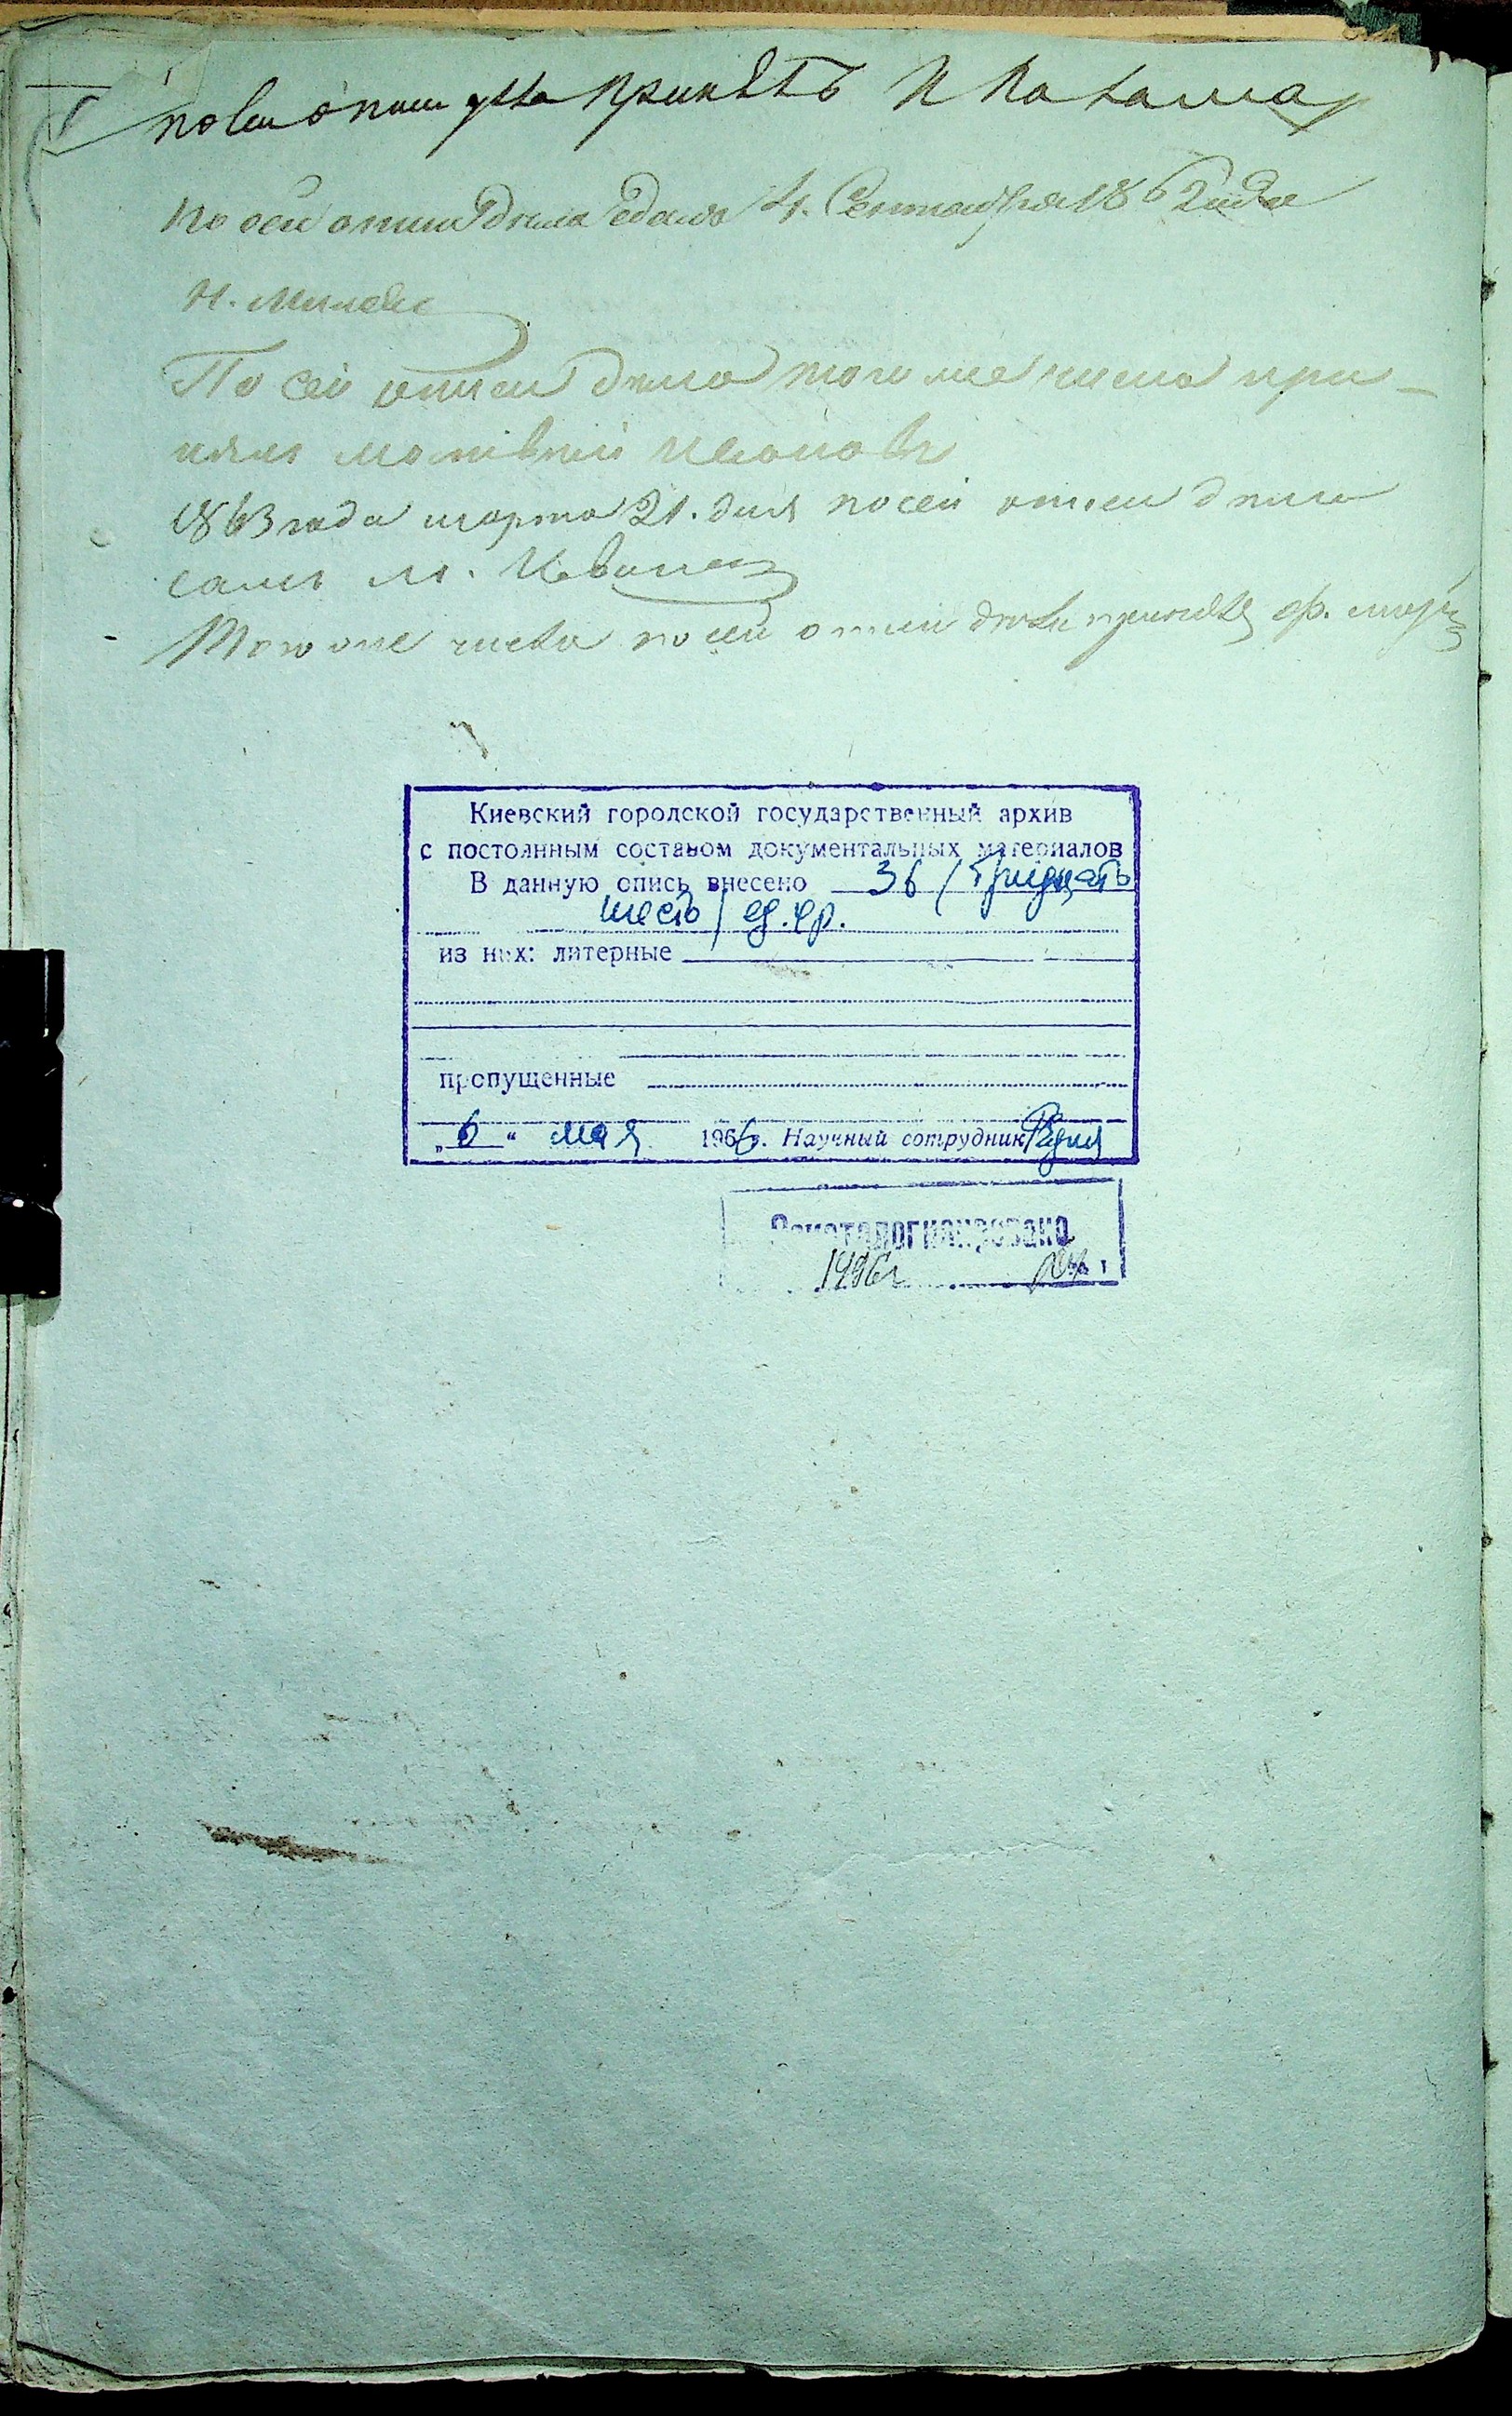 по сей описи дела принялъ И
По сей описи дела сдалъ 4. Сентября 1862 года
Н.
По сей описи дела того же числа при-
нялъ Матвей Иванов
1863 года марта 21. дня по сей описи дела
сдалъ М. Иванов
Того же числа по сей описи дела принялъ Ф.
Киевский городской государственный архив
с постоянным составом документальных материалов
В данную опись внесено 36 /тридцать
шесть/ ед. хр.
из них: литерные
пропущенные
„6“ мая 1966г. Научный сотрудник
Закаталогизировано